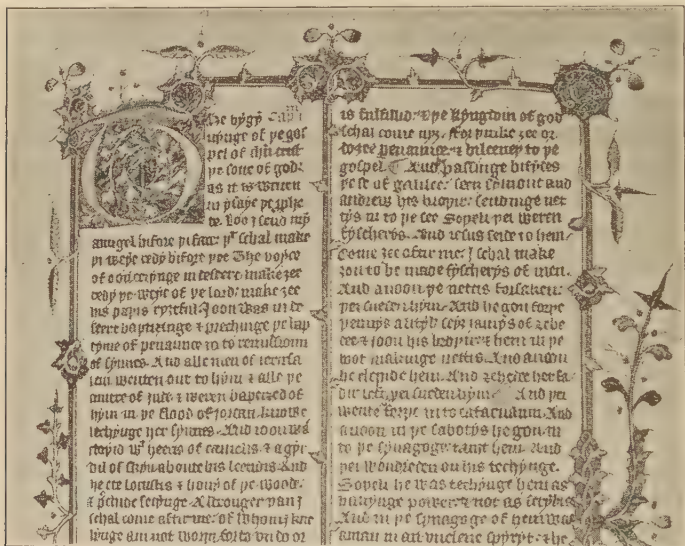 he bygȳ
nynge of þe gos
pel of ihū crist
þe sone of god:
as it is writen
in ysaye þe pphe
te. Loo I send myn
aungel bifore þi face: þt schal make
þi weye redy bifore þee The voyce
of oon cryinge in desert: make zee
redy þe weye of þe lord: make zee
his paþis Joon was in de
sert baptisinge & prechinge þe bap
tyme of penaunce in to remissioun
of synnes. And alle men of ierusa
lem wenten out to hym & alle þe
of jude & weren baptised of
hym in þe flood of jordan: knowle
chynge her synnes. And ioon was
cloþid wt heeris of camelis & a gyr
dil of skyn aboute his leendis. And
he ete locustis & hony of þe wode:
& pchide seiynge. A strouger þan I
schal come aftir me: of whom I kne
lynge am not worþi forto vndo or
is fulfillid: & þe kyngdom of god
schal come nyz. forþinke zee or
do zee penaunce: & bileeue to þe
gospel. And passinge bisydes
þe se of galilee: seez symont and
andrew his broþir: sendinge net
tys in to þe see Sopeli þei weren
fyscherys. And iesus seide to hem
Come zee aftir me: I schal make
zou to be made fyscherys of men.
And anoon þe nettis forsaken:
þei sueden hym. And he gon forþe
þennys a lityl: seiz jamys of zebe
dee & joon his broþir: & hem in þe
boot makinge nettis. And anoon
he clepide hem. And zebedee her fa
dir left: þei sueden hym. And þei
wente forþe in to cafarnaum. And
anoon in þe sabotys he gon in
to þe synagoge: tauzt hem. And
þei wondreden on his techynge.
Sopeli he was techynge hem as
hauynge power: & not as scrybis
And in þe synagoge of hem was
aman in an vnclene spyryt: & he